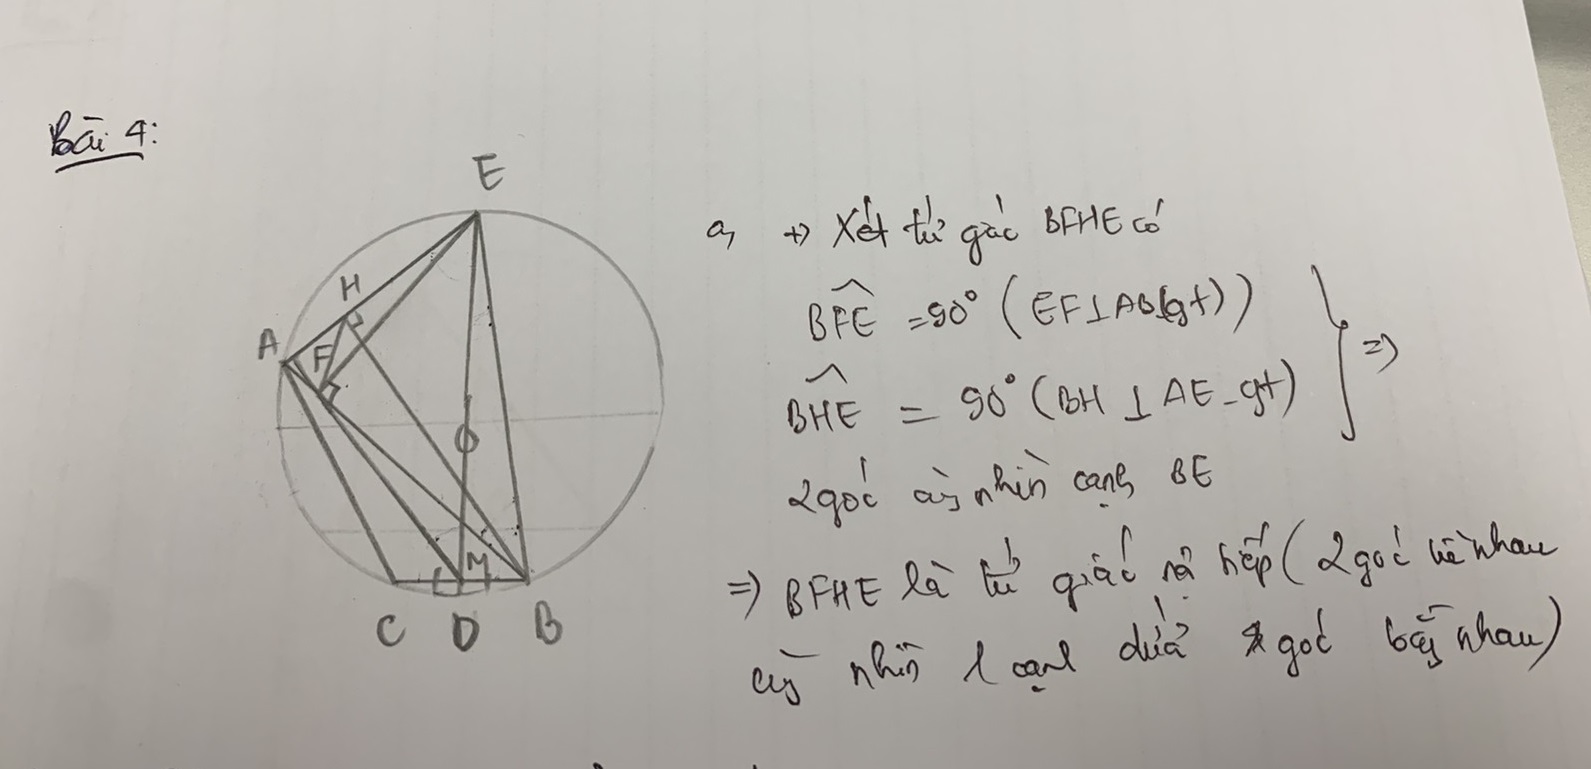 Bài 4:
E
H
A
F
O
M
C D B
a, +> Xét tứ giác BFHE có
BFE = 90° (EF⊥AB(gt))
=>
BHE = 90° (BH ⊥ AE - gt)
2 góc cùng nhìn cạnh BE
=> BFHE là tứ giác nội tiếp (2 góc kề nhau
cùng nhìn 1 cạnh dưới góc bằng nhau)